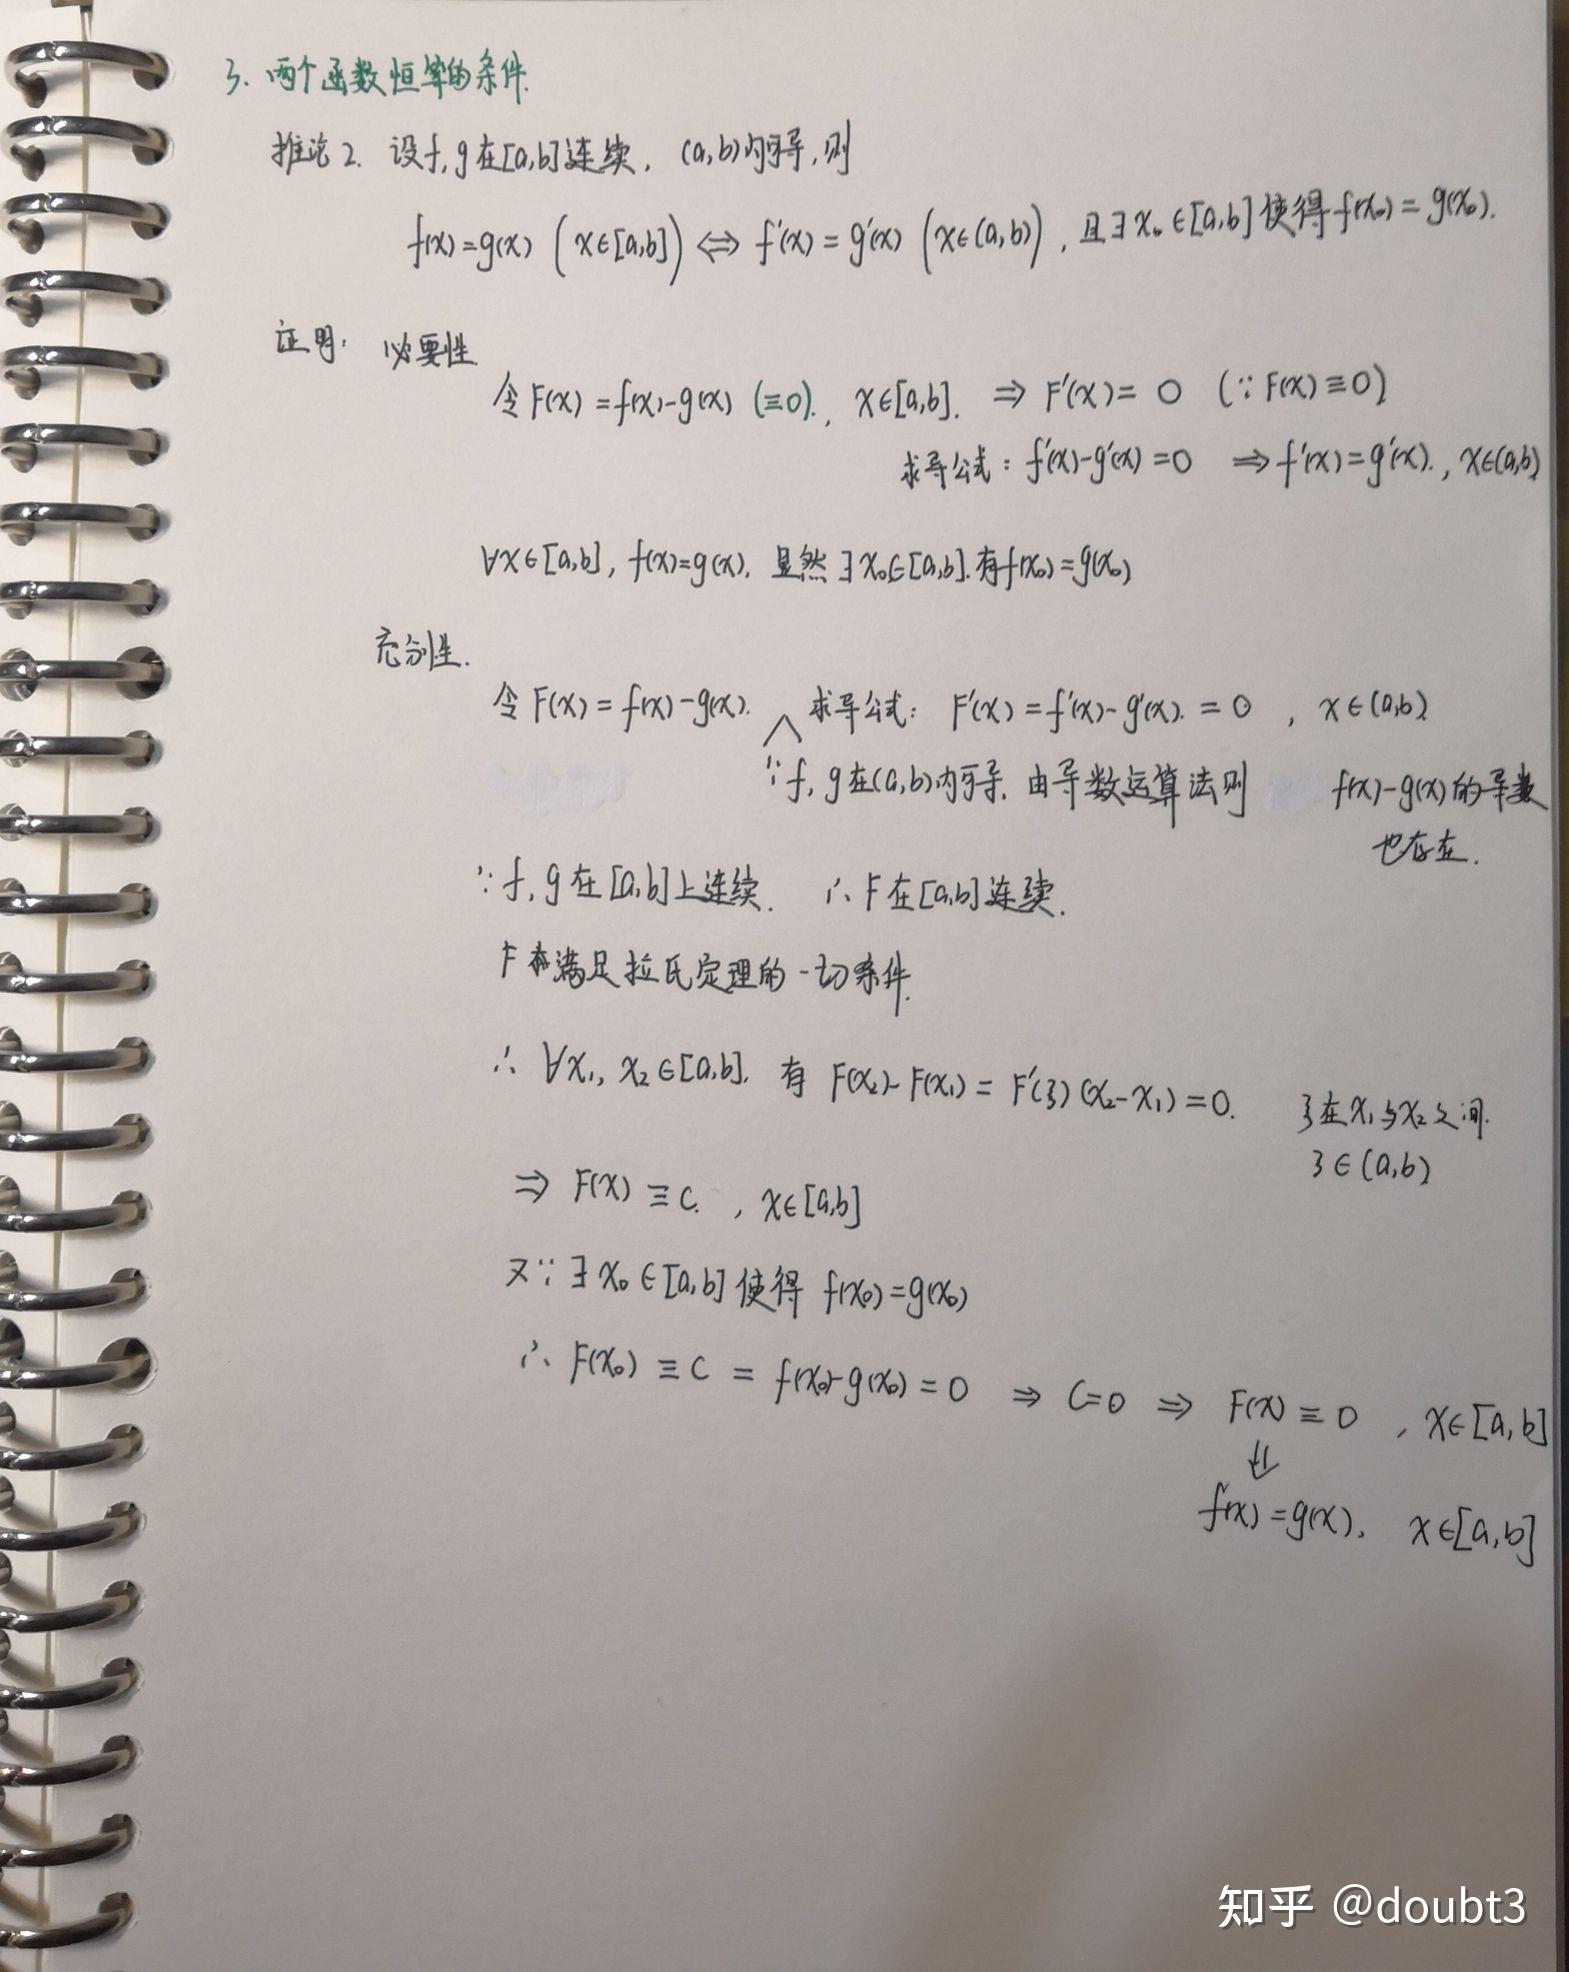 3. 两个函数恒等的条件.
推论2. 设f,g在[a,b]连续, (a,b)内可导,则
f(x)=g(x) (x∈[a,b]) ⇔ f'(x)=g'(x) (x∈(a,b)), 且∃x₀∈[a,b]使得f(x₀)=g(x₀).
证明: 必要性
令F(x)=f(x)-g(x) (≡0)., x∈[a,b]. ⇒ F'(x)=0 (∵F(x)≡0)
求导公式: f'(x)-g'(x)=0 ⇒ f'(x)=g'(x)., x∈(a,b)
∀x∈[a,b], f(x)=g(x). 显然∃x₀∈[a,b].有f(x₀)=g(x₀)
充分性.
令F(x)=f(x)-g(x). 求导公式: F'(x)=f'(x)-g'(x).=0 , x∈(a,b)
∵f,g在(a,b)内可导. 由导数运算法则 f(x)-g(x)的导数
也存在.
∵f,g在[a,b]上连续. ∴F在[a,b]连续.
F满足拉氏定理的一切条件.
∴ ∀x₁, x₂∈[a,b]. 有 F(x₂)-F(x₁)=F'(ξ)(x₂-x₁)=0. ξ在x₁与x₂之间.
ξ∈(a,b)
⇒ F(x)≡C. , x∈[a,b]
又∵∃x₀∈[a,b]使得 f(x₀)=g(x₀)
∴ F(x₀)≡C = f(x₀)-g(x₀)=0 ⇒ C=0 ⇒ F(x)≡0 , x∈[a,b]
⇓
f(x)=g(x), x∈[a,b]
知乎 @doubt3